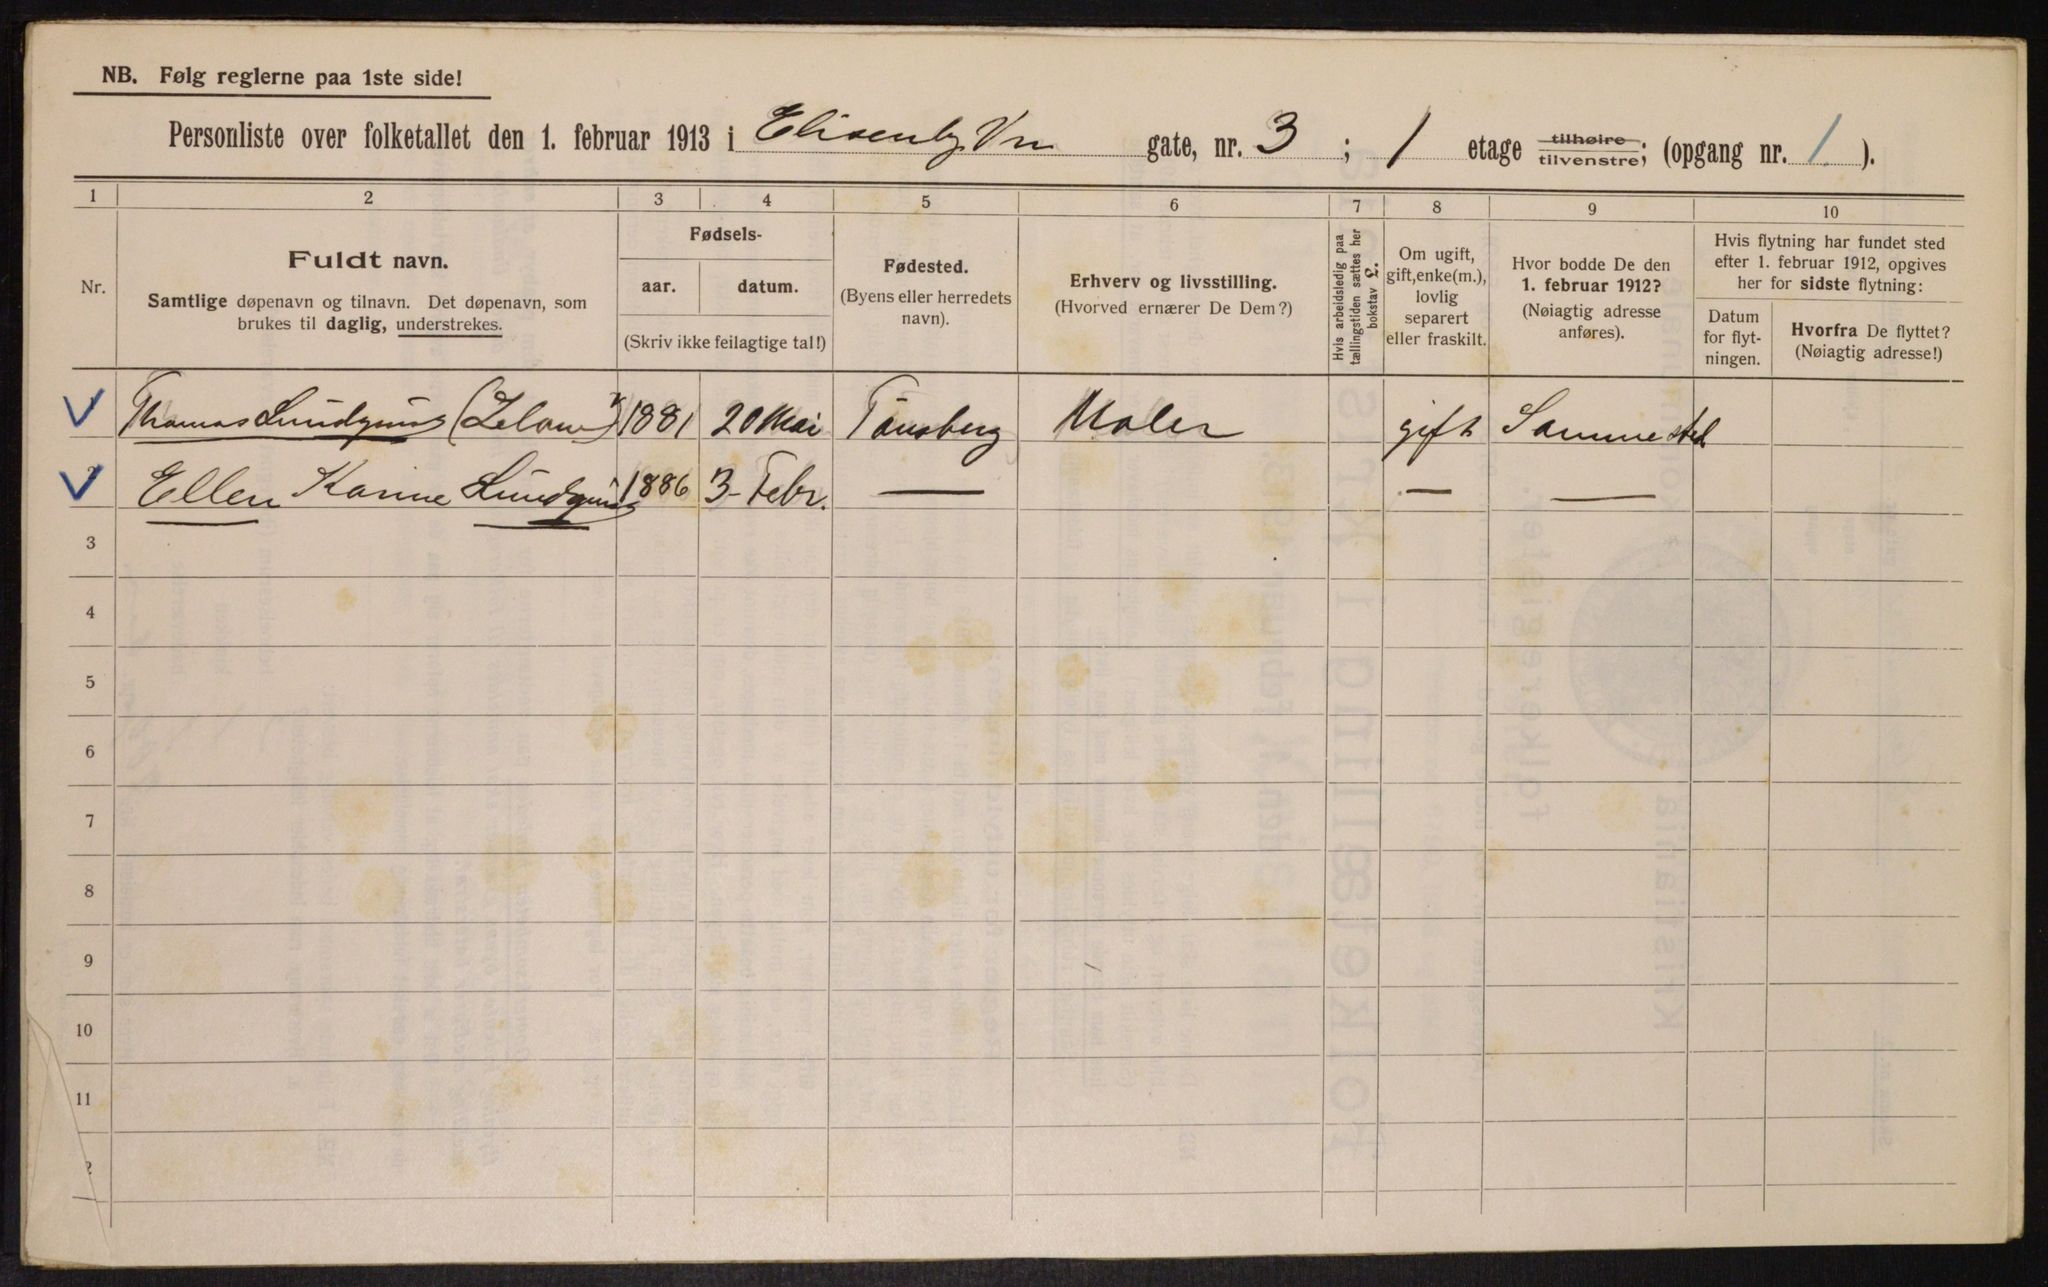 NB. Følg reglerne paa 1ste side!
Personliste over folketallet den 1. februar 1913 i Elisenby Vn gate, nr. 3 ; 1 etage tilhøire tilvenstre; (opgang nr. 1.).
1 2 3 4 5 6 7 8 9 10
Nr.
Fuldt navn.
Samtlige døpenavn og tilnavn. Det døpenavn, som
brukes til daglig, understrekes.
Fødsels-
aar. datum.
(Skriv ikke feilagtige tal!)
Fødested.
(Byens eller herredets
navn).
Erhverv og livsstilling.
(Hvorved ernærer De Dem?)
Hvis arbeidsledig paa
tællingstiden sættes her
bokstav £.
Om ugift,
gift, enke(m.),
lovlig
separert
eller fraskilt.
Hvor bodde De den
1. februar 1912?
(Nøiagtig adresse
anføres).
Hvis flytning har fundet sted
efter 1. februar 1912, opgives
her for sidste flytning:
Datum
for flyt-
ningen.
Hvorfra De flyttet?
(Nøiagtig adresse!)
Thomas Lundquist 1881 20 Mai Tönsberg Maler gift Samme sted
Ellen Karine Lundquist 1886 3- Febr. — — —
3
4
5
6
7
8
9
10
11
2